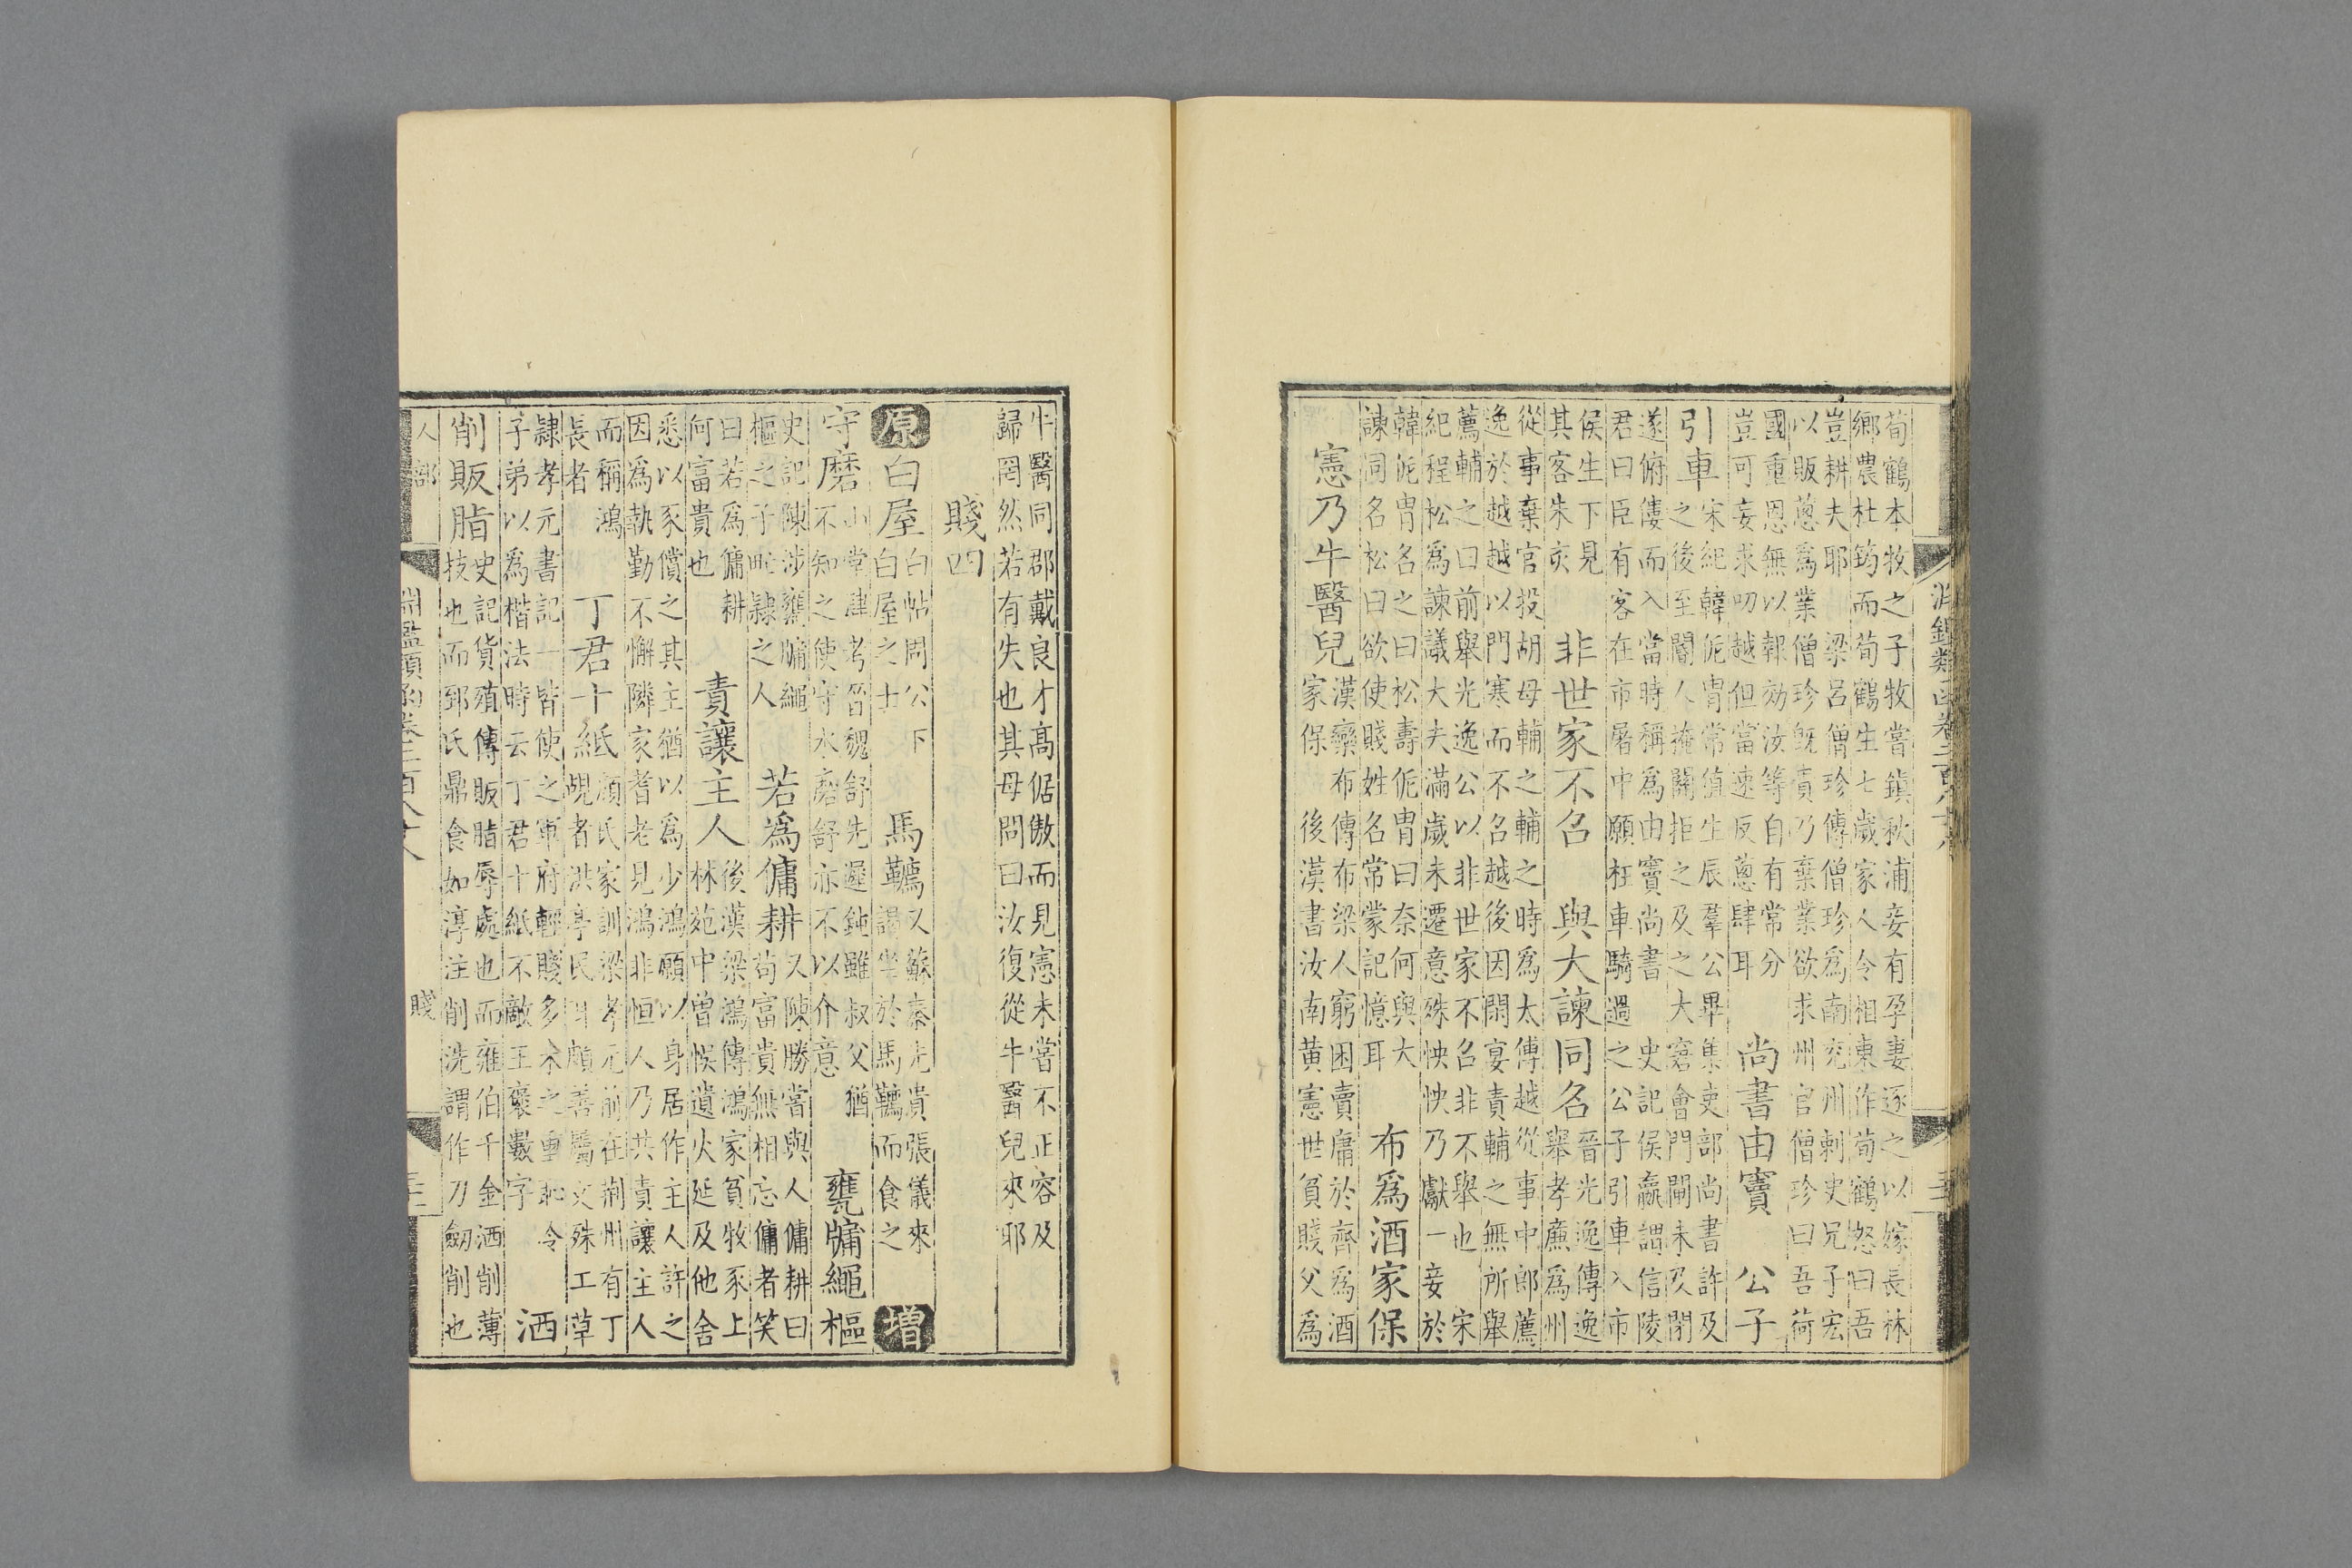 荀鶴本牧之子牧嘗鎮秋浦妾有孕妻逐之以嫁長林
鄉農杜筠而荀鶴生七歲家人令相東作荀鶴怒曰吾
豈耕夫耶　梁呂僧珍傳僧珍爲南兖州刺史兄子宏
以販蔥爲業僧珍旣責乃棄業欲求州官僧珍曰吾荷
國重恩無以報効汝等自有常分
豈可妄求叨越但當速反蔥肆耳
尚書由竇　公子
引車
宋紀韓侂胄常值生辰羣公畢集吏部尚書許及
之後至閽人掩關拒之及之大窘會門閘未及閉
遂俯僂而入當時稱爲由竇尚書　史記侯嬴謂信陵
君曰臣有客在市屠中願枉車騎過之公子引車入市
侯生下見
其客朱亥
非世家不召　與大諫同名
晉光逸傳逸
舉孝廉爲州
從事棄官投胡母輔之輔之時爲太傅越從事中郎薦
逸於越越以門寒而不召越後因閑宴責輔之無所舉
薦輔之曰前舉光逸公以非世家不召非不舉也　宋
紀程松爲諫議大夫滿歲未遷意殊怏怏乃獻一妾於
韓侂胄名之曰松壽侂胄曰奈何與大
諫同名松曰欲使賤姓名常蒙記憶耳
布爲酒家保
憲乃牛醫兒
漢欒布傳布梁人窮困賣庸於齊爲酒
家保　後漢書汝南黃憲世貧賤父爲
牛醫同郡戴良才高倨傲而見憲未嘗不正容及
歸罔然若有失也其母問曰汝復從牛醫兒來耶
賤四
原　白屋
白帖周公下
白屋之士
馬韉
又蘇秦先貴張儀來
謁坐於馬韉而食之
增
守磨
山堂肆考晉魏舒先遲鈍雖叔父猶
不知之使守水磨舒亦不以介意
甕牖繩樞
史記陳涉甕牖繩
樞之子甿隸之人
若爲傭耕
又陳勝嘗與人傭耕曰
苟富貴無相忘傭者笑
曰若爲傭耕
何富貴也
責讓主人
後漢梁鴻傳鴻家貧牧豕上
林苑中曾悞遺火延及他舍
悉以豕償之其主猶以爲少鴻願以身居作主人許之
因爲執勤不懈隣家耆老見鴻非恒人乃共責讓主人
而稱鴻
長者
丁君十紙
顏氏家訓梁孝元前在荆州有丁
覘者洪亭民耳頗善屬文殊工草
隸孝元書記一皆使之軍府輕賤多未之重恥令
子弟以爲楷法時云丁君十紙不敵王襃數字
洒
削販脂
史記貨殖傳販脂辱處也而雍伯千金洒削薄
技也而郅氏鼎食如淳注削洗謂作刀劒削也
人部
賤